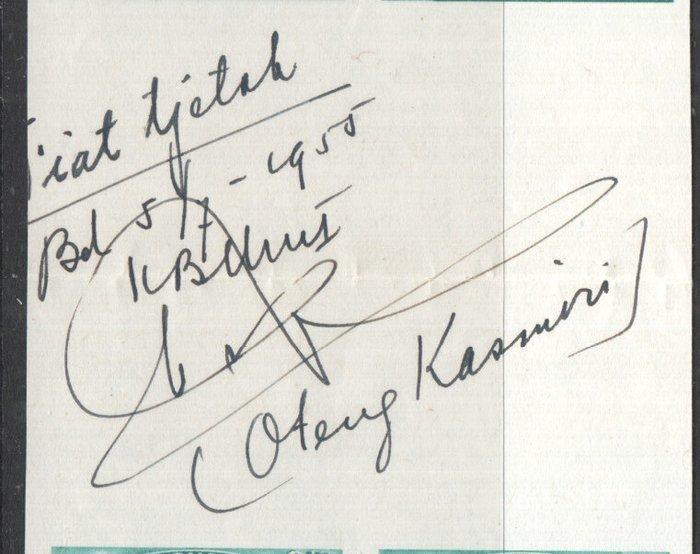 iat tjetak
Bd 5/7-1955
(Oteng Kasmiri)